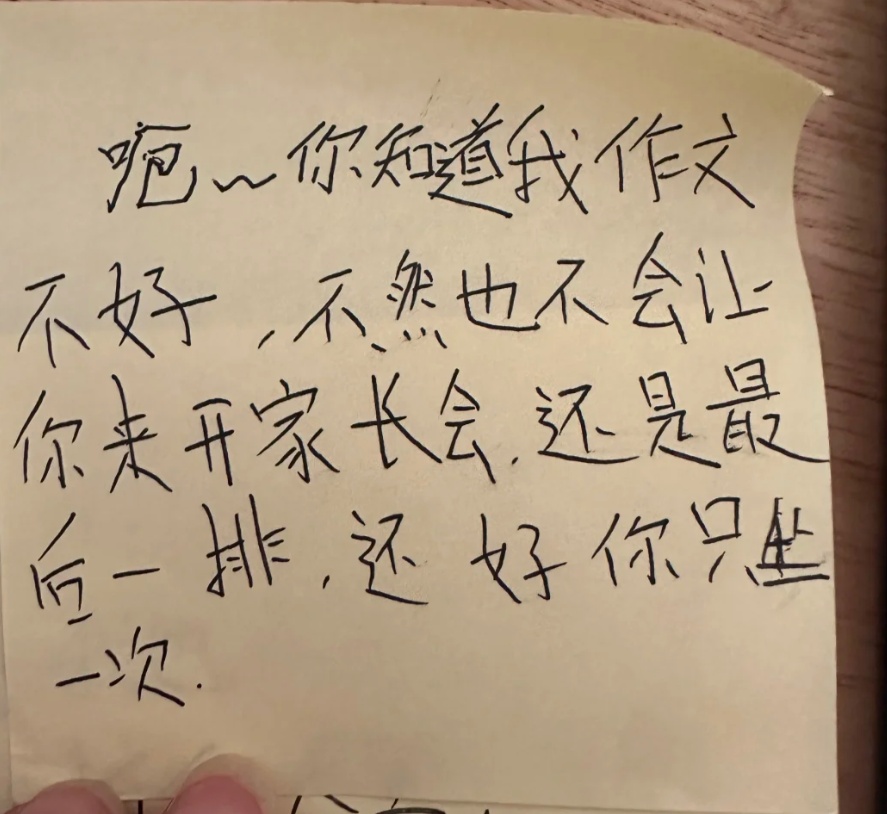 呃~你知道我作文
不好，不然也不会让
你来开家长会.还是最
后一排,还好你只坐
一次.